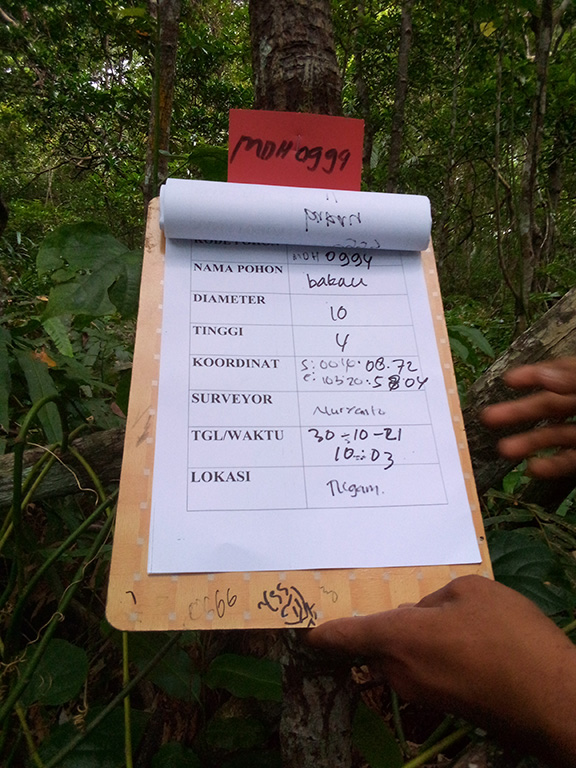 MDH 0999
KODE POHON MDH 0994
NAMA POHON bakau
DIAMETER 10
TINGGI 4
KOORDINAT S: 00 40. 08.72
E: 103 20. 58.04
SURVEYOR
TGL/WAKTU 30-10-21
10:03
LOKASI